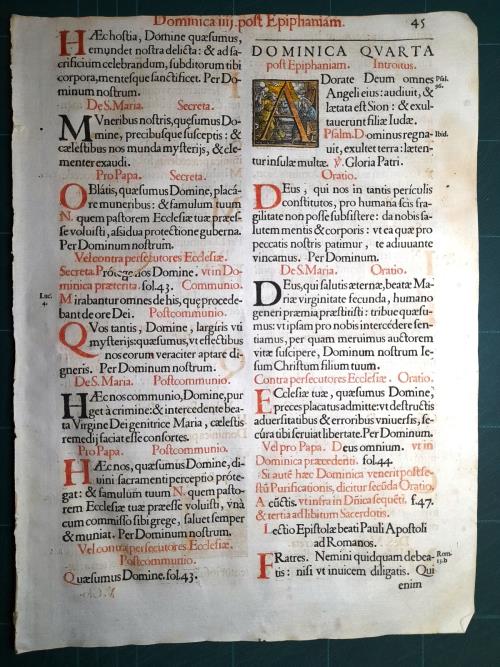 Dominica iiij. post Epiphaniam.
45
HÆc hostia, Domine quæsumus,
emundet nostra delicta: & ad sa-
crificium celebrandum, subditorum tibi
corpora, mentesque sanctificet. Per Do-
minum nostrum.
De S. Maria. Secreta.
MVneribus nostris, quęsumus Do-
mine, precibusque susceptis: &
cælestibus nos munda mysterijs, & cle-
menter exaudi.
Pro Papa. Secreta.
OBlátis, quæsumus Domine, placá-
re muneribus: & famulum tuum
N. quem pastorem Ecclesiæ tuæ præes-
se voluisti, assidua protectione guberna.
Per Dominum nostrum.
Vel contra persecutores Ecclesiæ.
Secreta. Protege nos Domine. vt in Do-
minica præterita. fol. 43. Communio.
Luc. 4.
Mirabantur omnes de his, quę procede-
bant de ore Dei. Postcommunio.
QVos tantis, Domine, largíris vti
mysterijs: quæsumus, vt effectibus
nos eorum veraciter aptare di-
gneris. Per Dominum nostrum.
De S. Maria. Postcommunio.
HÆc nos communio, Domine, pur
get à crimine: & intercedente bea-
ta Virgine Dei genitrice Maria, cælestis
remedij faciat esse consortes.
Pro Papa. Postcommunio.
HÆc nos, quæsumus Domine, di-
uini sacramenti perceptio próte-
gat: & famulum tuum N. quem pasto-
rem Ecclesiæ tuæ præesse voluisti, vnà
cum commisso sibi grege, saluet semper
& muniat. Per Dominum nostrum.
Vel contra persecutores Ecclesiæ.
Postcommunio.
Quæsumus Domine. fol. 43.
DOMINICA QVARTA
post Epiphaniam. Introitus.
ADorate Deum omnes
Psal. 96.
Angeli eius: audiuit, &
lætata est Sion: & exul-
tauerunt filiæ Iudæ.
Psalm. Dominus regna-
Ibid.
uit, exultet terra: læten-
tur insulæ multæ. ℣. Gloria Patri.
Oratio.
DEus, qui nos in tantis periculis
constitutos, pro humana scis fra-
gilitate non posse subsistere: da nobis sa-
lutem mentis & corporis: vt ea quæ pro
peccatis nostris patimur, te adiuuante
vincamus. Per Dominum.
De S. Maria. Oratio.
DEus, qui salutis æternæ, beatæ Ma-
riæ virginitate fecunda, humano
generi præmia præstitisti: tribue quæsu-
mus: vt ipsam pro nobis intercédere sen-
tiamus, per quam meruimus auctorem
vitæ suscipere, Dominum nostrum Ie-
sum Christum filium tuum.
Contra persecutores Ecclesiæ. Oratio.
ECclesiæ tuæ, quæsumus Domine,
preces placatus admitte: vt destructis
aduersitatibus & erroribus vniuersis, se-
cúra tibi seruiat libertate. Per Dominum.
Vel pro Papa. Deus omnium. vt in
Dominica præcedenti. fol. 44.
Si autē hæc Dominica venerit post fe-
stū Purificationis, dicitur secūda Oratio.
A cūctis. vt infra in Dnica sequēti. f. 47.
& tertia ad libitum Sacerdotis.
Lectio Epistolæ beati Pauli Apostoli
ad Romanos.
FRatres. Nemini quidquam debea-
Rom. 13. b
tis: nisi vt inuicem diligatis. Qui
enim